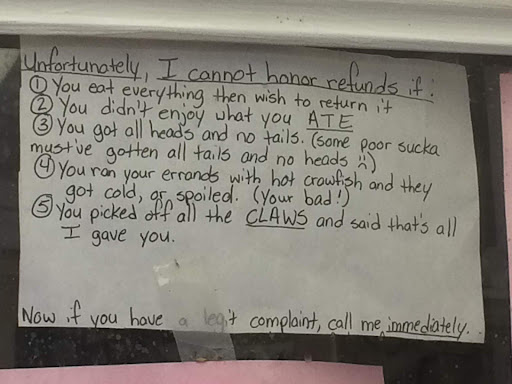 Unfortunately, I cannot honor refunds if:
① You eat everything then wish to return it
② You didn't enjoy what you ATE
③ You got all heads and no tails. (some poor sucka
must've gotten all tails and no heads :))
④ You ran your errands with hot crawfish and they
got cold, or spoiled. (Your bad!)
⑤ You picked off all the CLAWS and said that's all
I gave you.
Now if you have a legit complaint, call me immediately.